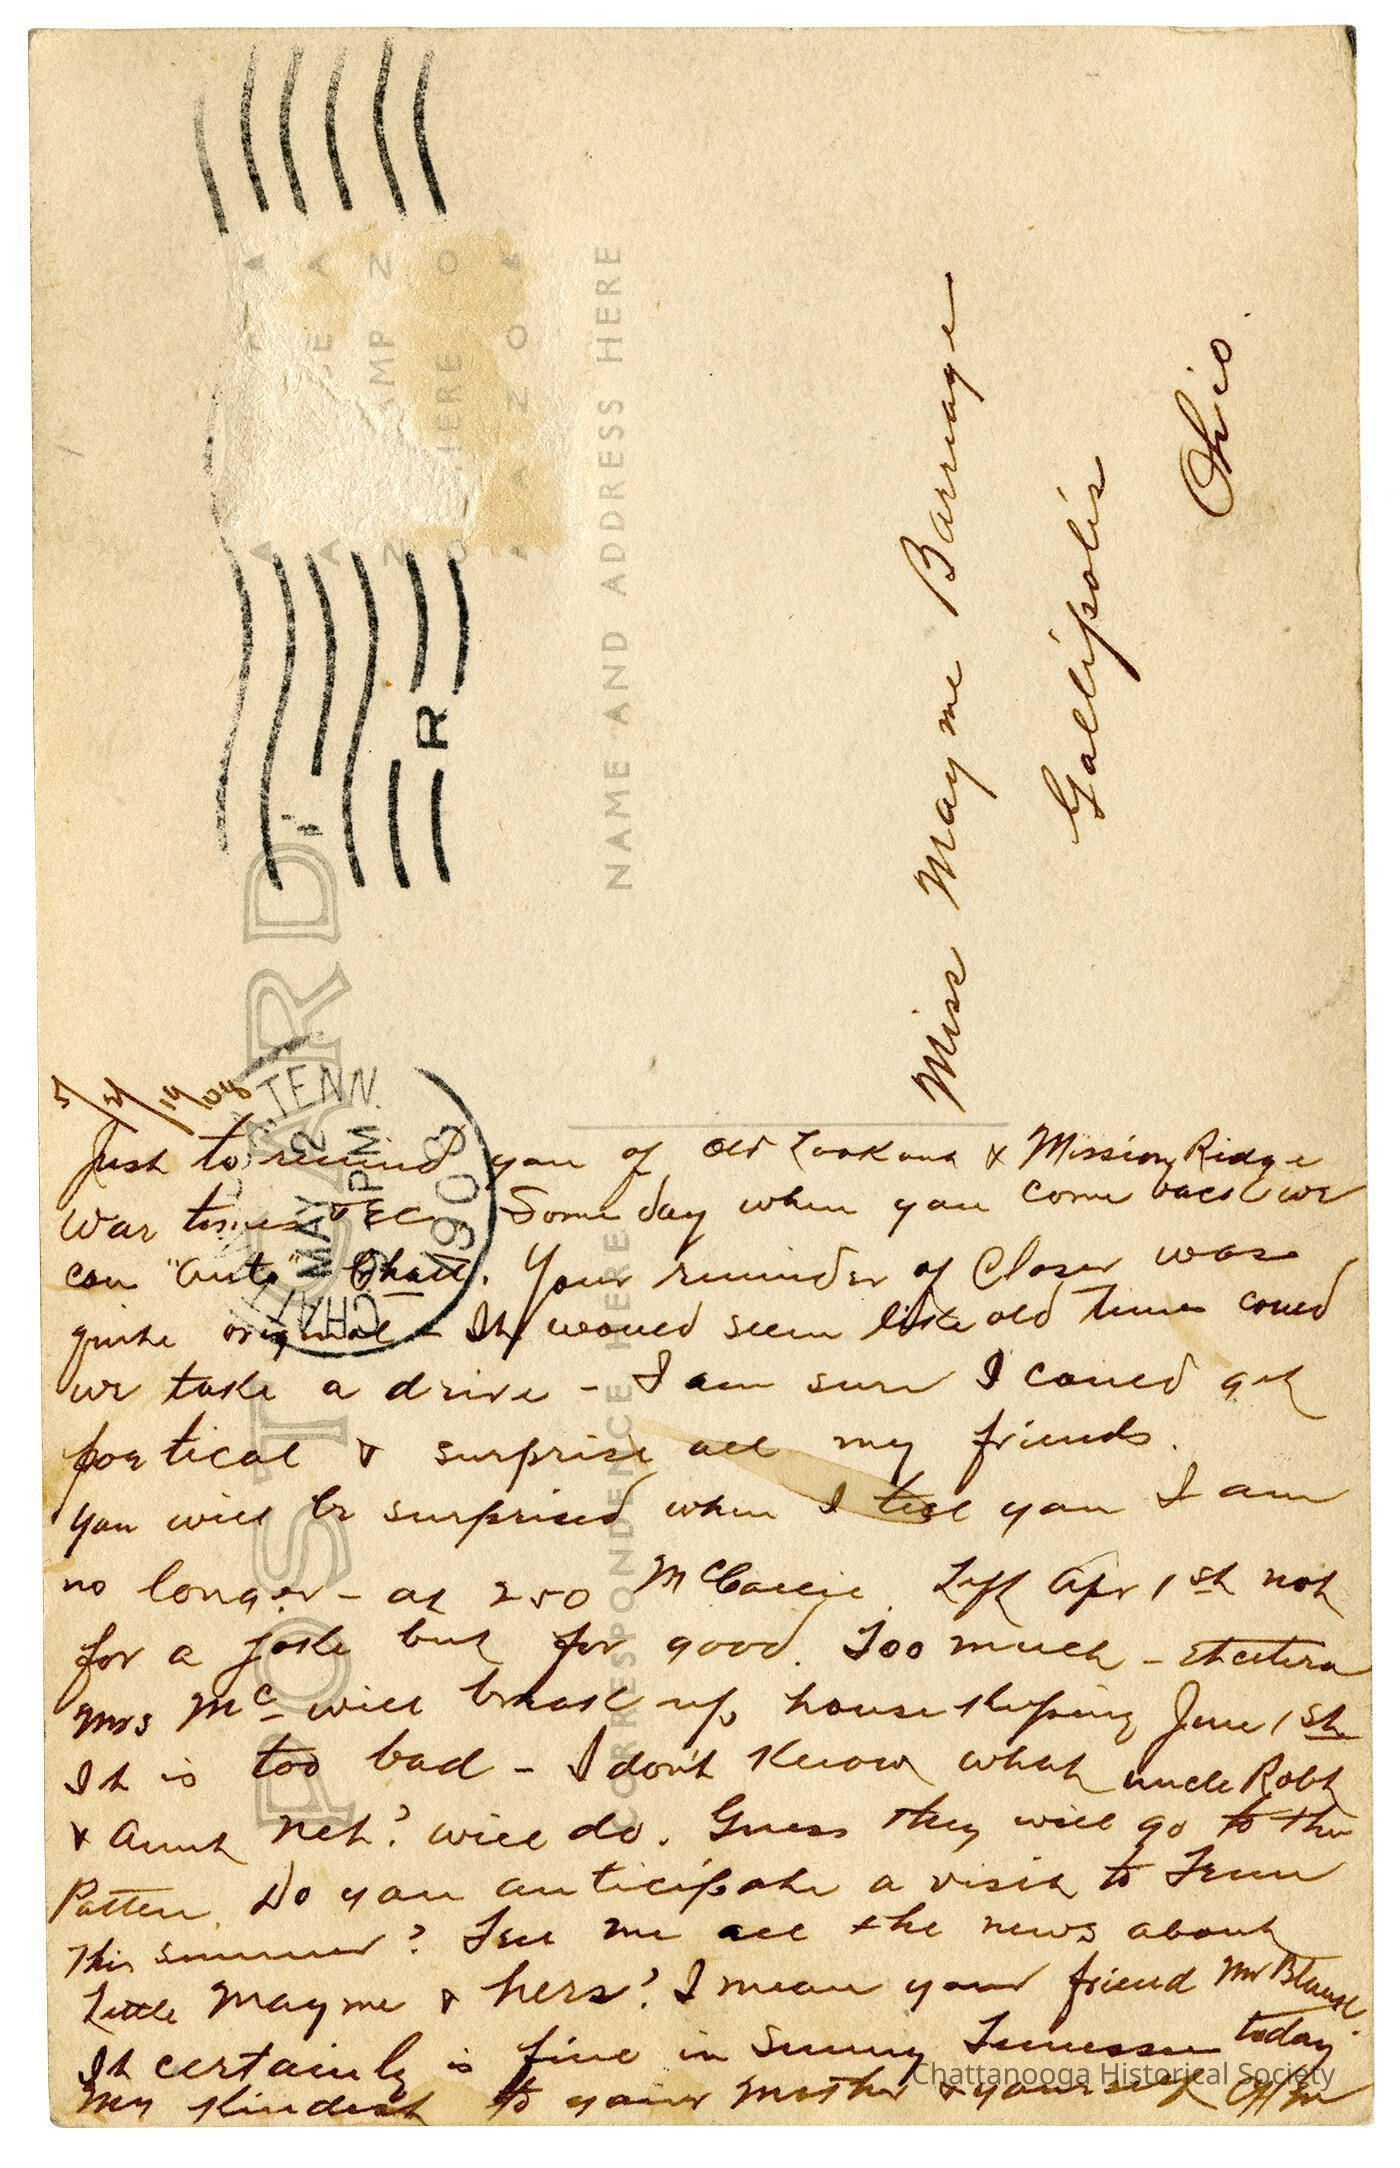 POST CARD
CORRESPONDENCE HERE
NAME AND ADDRESS HERE
CHATTANOOGA TENN.
MAY 2
PM
1908
R
Miss Mayme Barrage
Gallipolis
Ohio.
5/2/1908
Just to remind you of Old Lookout & Mission Ridge
War times Etc. Some day when you come back we
can "auto" Chatt. Your reminder of Closer was
quite original - It would seem like old times could
we take a drive - I am sure I could get
poetical & surprise all my friends.
you will be surprised when I tell you I am
no longer - at 250 McCallie. Left Apr 1st not
for a joke but for good. Too much - etcetera
Mrs Mc will break up housekeeping June 1st
It is too bad - I don't know what uncle Robt
& Aunt Net? will do. Guess they will go to the
Patten. Do you anticipate a visit to Tenn
This summer? Tell me all the news about
Little Mayme & hers? I mean your friend Mr
It certainly is fine in Sunny Tennessee today
My kindest to your Mother & yourself
Chattanooga Historical Society